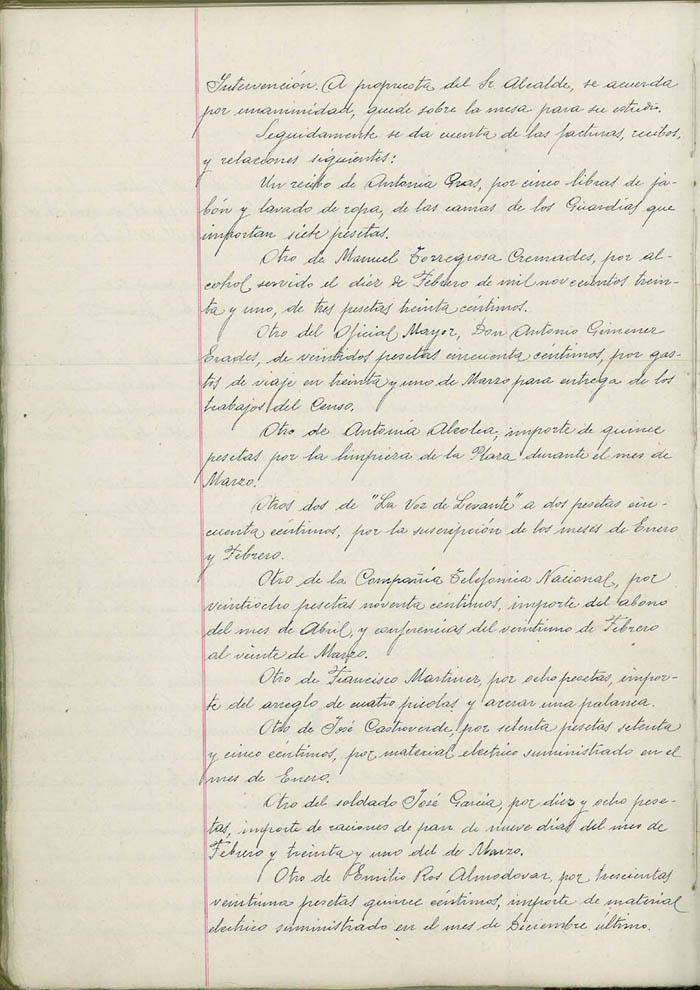 Intervención. A propuesta del Sr. Alcalde, se acuerda
por unanimidad, quede sobre la mesa para su estudio.
Seguidamente se da cuenta de las facturas, recibos,
y relaciones siguientes:
Un recibo de Antonia Gras, por cinco libras de ja-
bón y lavado de ropa, de las camas de los Guardias que
importan siete pesetas.
Otro de Manuel Torregrosa Cremades, por al-
cohol servido el diez de Febrero de mil novecientos trein-
ta y uno, de tres pesetas treinta céntimos.
Otro del Oficial Mayor, Don Antonio Gimenez
Erades, de veintidos pesetas cincuenta céntimos, por gas-
tos de viaje en treinta y uno de Marzo para entrega de los
trabajos del Censo.
Otro de Antonia Alcolea, importe de quince
pesetas por la limpieza de la Plaza durante el mes de
Marzo.
Otros dos de "La Voz de Levante" a dos pesetas cin-
cuenta céntimos, por la suscripción de los meses de Enero
y Febrero.
Otro de la Compañia Telefonica Nacional, por
veintiocho pesetas noventa centimos, importe del abono
del mes de Abril, y conferencias del veintiuno de Febrero
al veinte de Marzo.
Otro de Francisco Martinez, por ocho pesetas, impor-
te del arreglo de cuatro picolas y acerar una palanca.
Otro de José Castroverde, por setenta pesetas setenta
y cinco céntimos, por material electrico suministrado en el
mes de Enero.
Otro del soldado José García, por diez y ocho pese-
tas, importe de raciones de pan de nueve días del mes de
Febrero y treinta y uno del de Marzo.
Otro de Emilio Ros Almodovar, por trescientas
veintiuna pesetas quince céntimos, importe de material
electrico suministrado en el mes de Diciembre último.